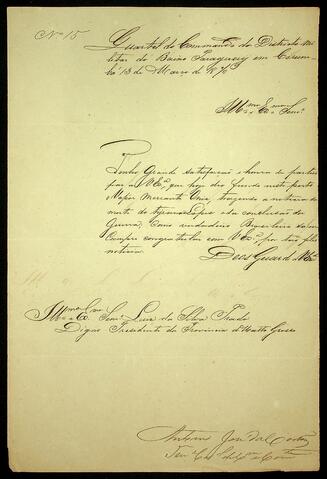 Nº 15
Quartel do Commando do Districto Mi
litar do Baixo Paraguay em Corum
bá 13 de Março de 1870
Illmo. e Exmo. Senr.
Tenho Grande satisfação e honra de partici
par a V.Exª, que hoje deo fundo neste porto
Vapor Mercante trazendo a noticia da
morte do tyranno Lopes e da conclusão da
Guerra. Como verdadeiro Brasileiro
Cumpre congratular com V.Exª, por tão feliz
noticia.
Deos Guarde a V.Exª
Illmo. e Exmo. Senr. Luiz da Silva Prado
Digno Presidente da Provincia d'Matto Grosso
Antonio José da Costa
Ten.